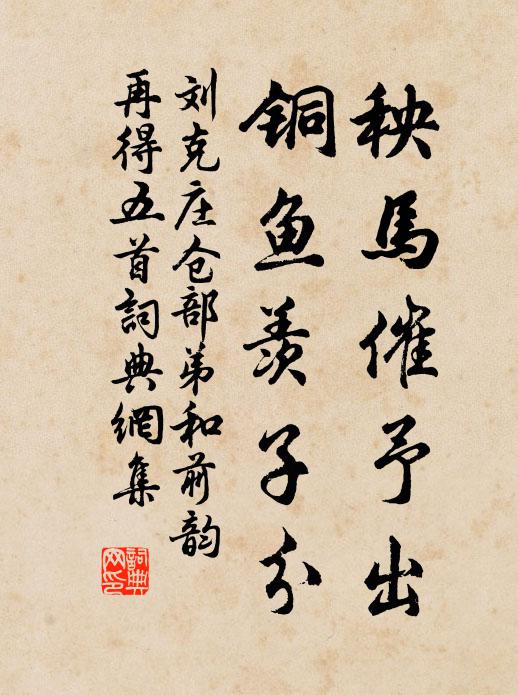 秧馬催予出
铜鱼羡子分
刘克庄仓部弟和前韵
再得五首詞典網集
詞典
网印